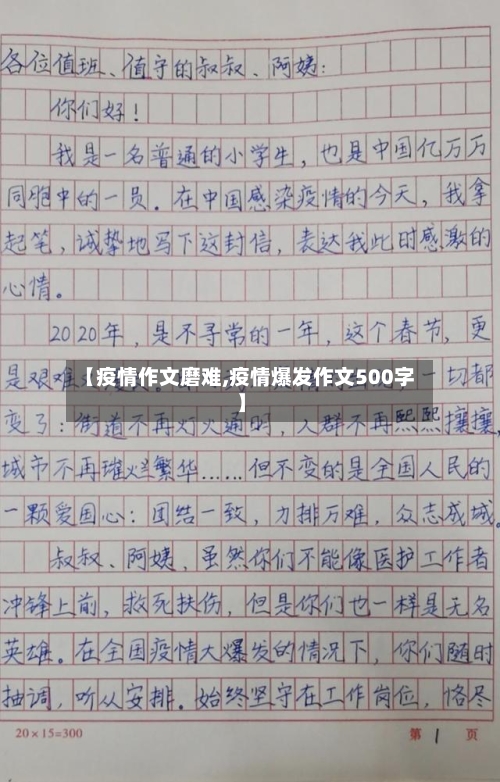 各位值班、值守的叔叔、阿姨:
你们好!
我是一名普通的小学生,也是中国亿万万
同胞中的一员。在中国感染疫情的今天,我拿
起笔,诚挚地写下这封信,表达我此时感激的
心情。
2020年,是不寻常的一年,这个春节,更
是艰难 一切都
【疫情作文磨难,疫情爆发作文500字
】
变了:街道不再灯火通明,人群不再熙熙攘攘,
城市不再璀烂繁华……但不变的是全国人民的
一颗爱国心:团结一致,力排万难,众志成城。
叔叔、阿姨,虽然你们不能像医护工作者
冲锋上前,救死扶伤,但是你们也一样是无名
英雄。在全国疫情大爆发的情况下,你们随时
抽调,听从安排。始终坚守在工作岗位,恪尽
20×15=300 第 1 页